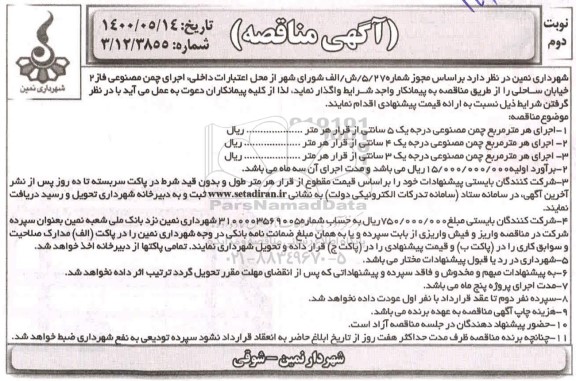 نوبت دوم
(آگهی مناقصه)
تاریخ: ۱۴۰۰/۰۵/۱۴
شماره: ۳/۱۲/۳۸۵۵
شهرداری نمین
شهرداری نمین در نظر دارد براساس مجوز شماره ۵/۲۷/ش/الف شورای شهر از محل اعتبارات داخلی، اجرای چمن مصنوعی فاز ۲
خیابان ساحلی را از طریق مناقصه به پیمانکار واجد شرایط واگذار نماید، لذا از کلیه پیمانکاران دعوت به عمل می آید با در نظر
گرفتن شرایط ذیل نسبت به ارائه قیمت پیشنهادی اقدام نمایند.
موضوع مناقصه:
۱-اجرای هر مترمربع چمن مصنوعی درجه یک ۵ سانتی از قرار هر متر .................... ریال
۲-اجرای هر مترمربع چمن مصنوعی درجه یک ۴ سانتی از قرار هر متر .................... ریال
۳-اجرای هر مترمربع چمن مصنوعی درجه یک ۳ سانتی از قرار هر متر .................... ریال
۲-برآورد اولیه ۱۵/۰۰۰/۰۰۰/۰۰۰ ریال می باشد و مدت اجرای آن سه ماه می باشد.
۳-شرکت کنندگان بایستی پیشنهادات خود را براساس قیمت مقطوع از قرار هر متر طول و بدون قید شرط در پاکت سربسته تا ده روز پس از نشر
آخرین آگهی، در سامانه ستاد (سامانه تدرکات الکترونیکی دولت) به نشانی www.setadiran.ir ثبت و به دبیرخانه شهرداری تحویل و رسید دریافت
نمایند.
۴-شرکت کنندگان بایستی مبلغ ۷۵۰/۰۰۰/۰۰۰ ریال به حساب شماره ۳۱۰۰۰۰۳۵۶۹۰۰۵ شهرداری نمین نزد بانک ملی شعبه نمین بعنوان سپرده
شرکت در مناقصه واریز و فیش واریزی از بابت سپرده و یا به همان مبلغ ضمانت نامه بانکی در وجه شهرداری نمین را در پاکت (الف) مدارک صلاحیت
و سوابق کاری را در (پاکت ب) و قیمت پیشنهادی را در (پاکت ج) قرار داده و تحویل شهرداری نمایند. تمامی پاکتها از دبیرخانه اخذ خواهد شد.
۵-شهرداری در رد یا قبول پیشنهادات مختار می باشد.
۶-به پیشنهادات مبهم و مخدوش و فاقد سپرده و پیشنهاداتی که پس از انقضای مهلت مقرر تحویل گردد ترتیب اثر داده نخواهد شد.
۷-مدت اجرای پروژه پنج ماه می باشد.
۸-سپرده نفر دوم تا عقد قرارداد با نفر اول عودت داده نخواهد شد.
۹-هزینه چاپ آگهی مناقصه به عهده برنده می باشد.
۱۰-حضور پیشنهاد دهندگان در جلسه مناقصه آزاد است.
۱۱-چنانچه برنده مناقصه ظرف مدت حداکثر هفت روز از تاریخ ابلاغ حاضر به انعقاد قرارداد نشود سپرده تودیعی به نفع شهرداری ضبط خواهد شد.
شهردار نمین – شوقی
ParsNamadData
۰۲۱-۸۸۳۴۹۶۷۰-۵